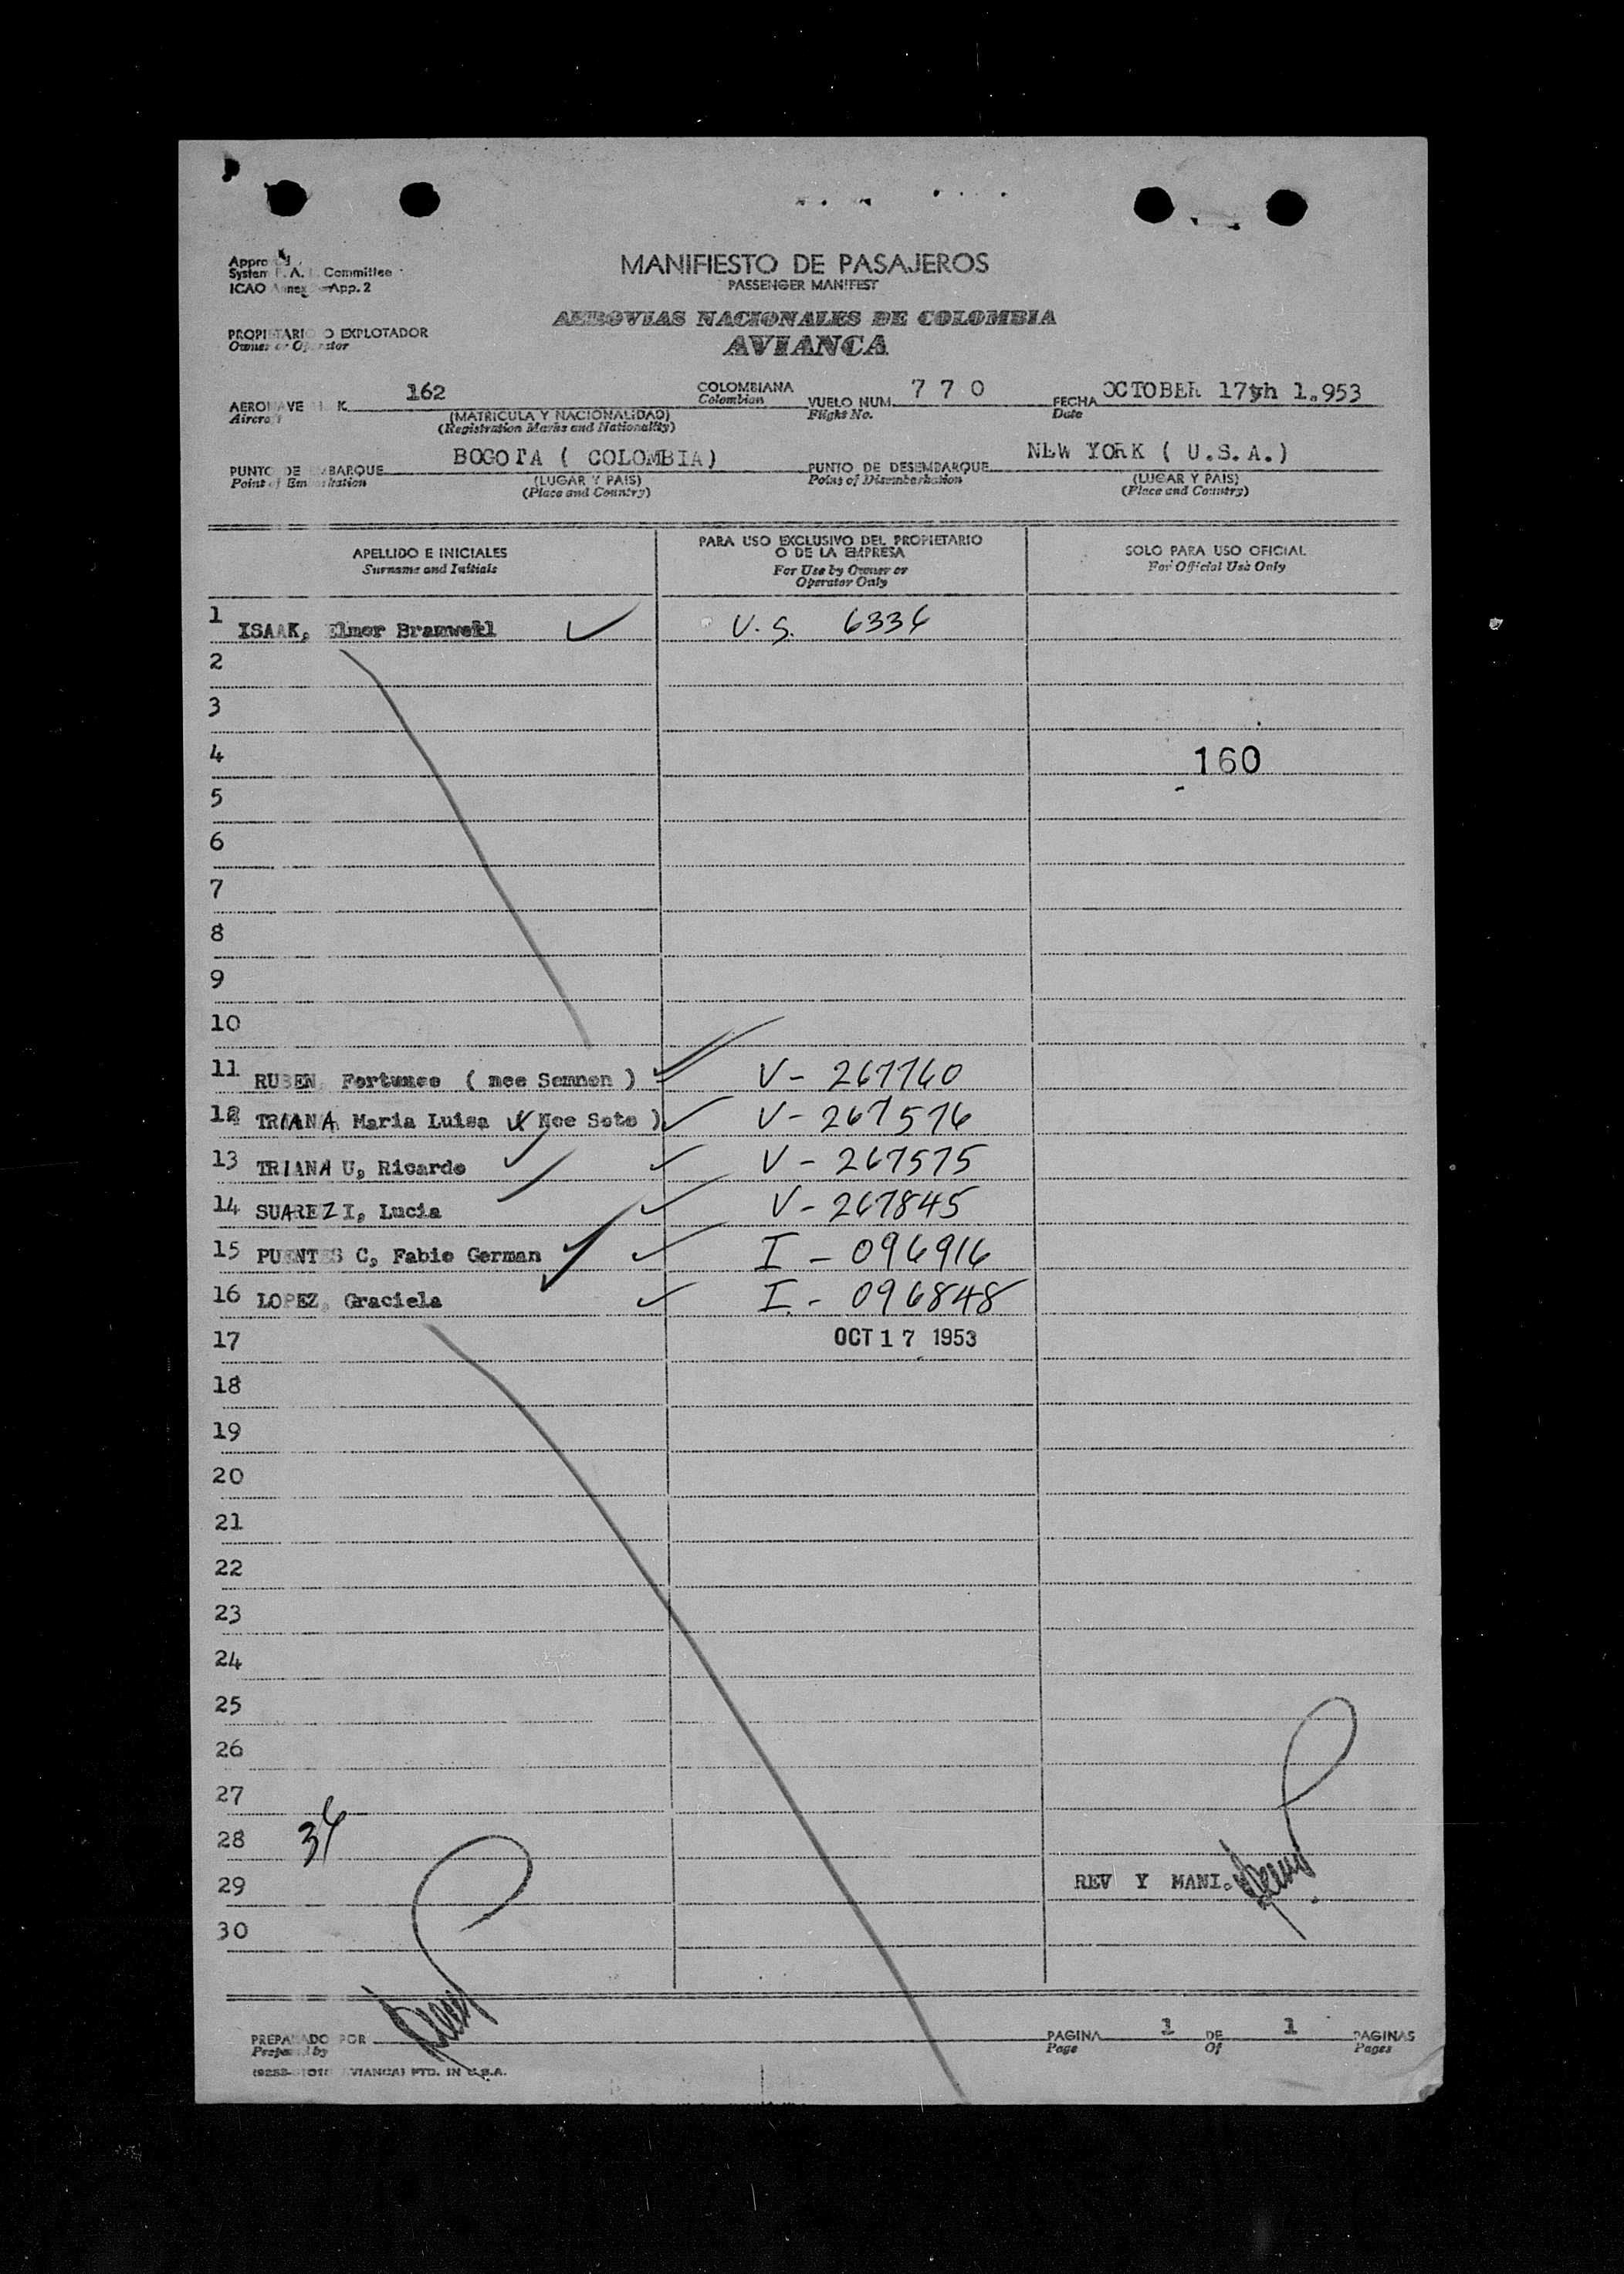 MANIFIESTO DE PASAJEROS
PASSENGER MANIFEST
System F. A. Committee
ICAO App. 2
AEROVIAS NACIONALES DE COLOMBIA
AVIANCA
PROPIETARIO O EXPLOTADOR
Owner or Operator
AERONAVE H K 162 COLOMBIANA VUELO NUM. 7 7 0 FECHA OCTOBER 17th 1.953
Aircraft (MATRICULA Y NACIONALIDAD) Colombian Flight No. Date
(Registration Marks and Nationality)
PUNTO DE EMBARQUE BOGOTA ( COLOMBIA) PUNTO DE DESEMBARQUE NEW YORK ( U.S.A.)
Point of Embarkation (LUGAR Y PAIS) Point of Disembarkation (LUGAR Y PAIS)
(Place and Country) (Place and Country)
APELLIDO E INICIALES PARA USO EXCLUSIVO DEL PROPIETARIO O DE LA EMPRESA SOLO PARA USO OFICIAL
Surname and Initials For Use by Owner or Operator Only For Official Use Only
1 ISAAK, Elmer Bramwell ✓ U.S. 6336
2
3
4 160
5
6
7
8
9
10
11 RUBEN, Fortunee ( nee Semnon ) ✓ V - 267760
12 TRIANA Maria Luisa ( Nee Soto ) ✓ V - 267576
13 TRIANA U, Ricardo ✓ V - 267575
14 SUAREZ I, Lucia ✓ V - 267845
15 PUENTES C, Fabio German ✓ I - 096916
16 LOPEZ, Graciela ✓ I - 096848
17 OCT 17 1953
18
19
20
21
22
23
24
25
26
27
28 34
29 REV Y MANI.
30
PREPARADO POR PAGINA 1 DE 1 PAGINAS
Prepared by Page Of Pages
AVIANCA) PTD. IN U.S.A.